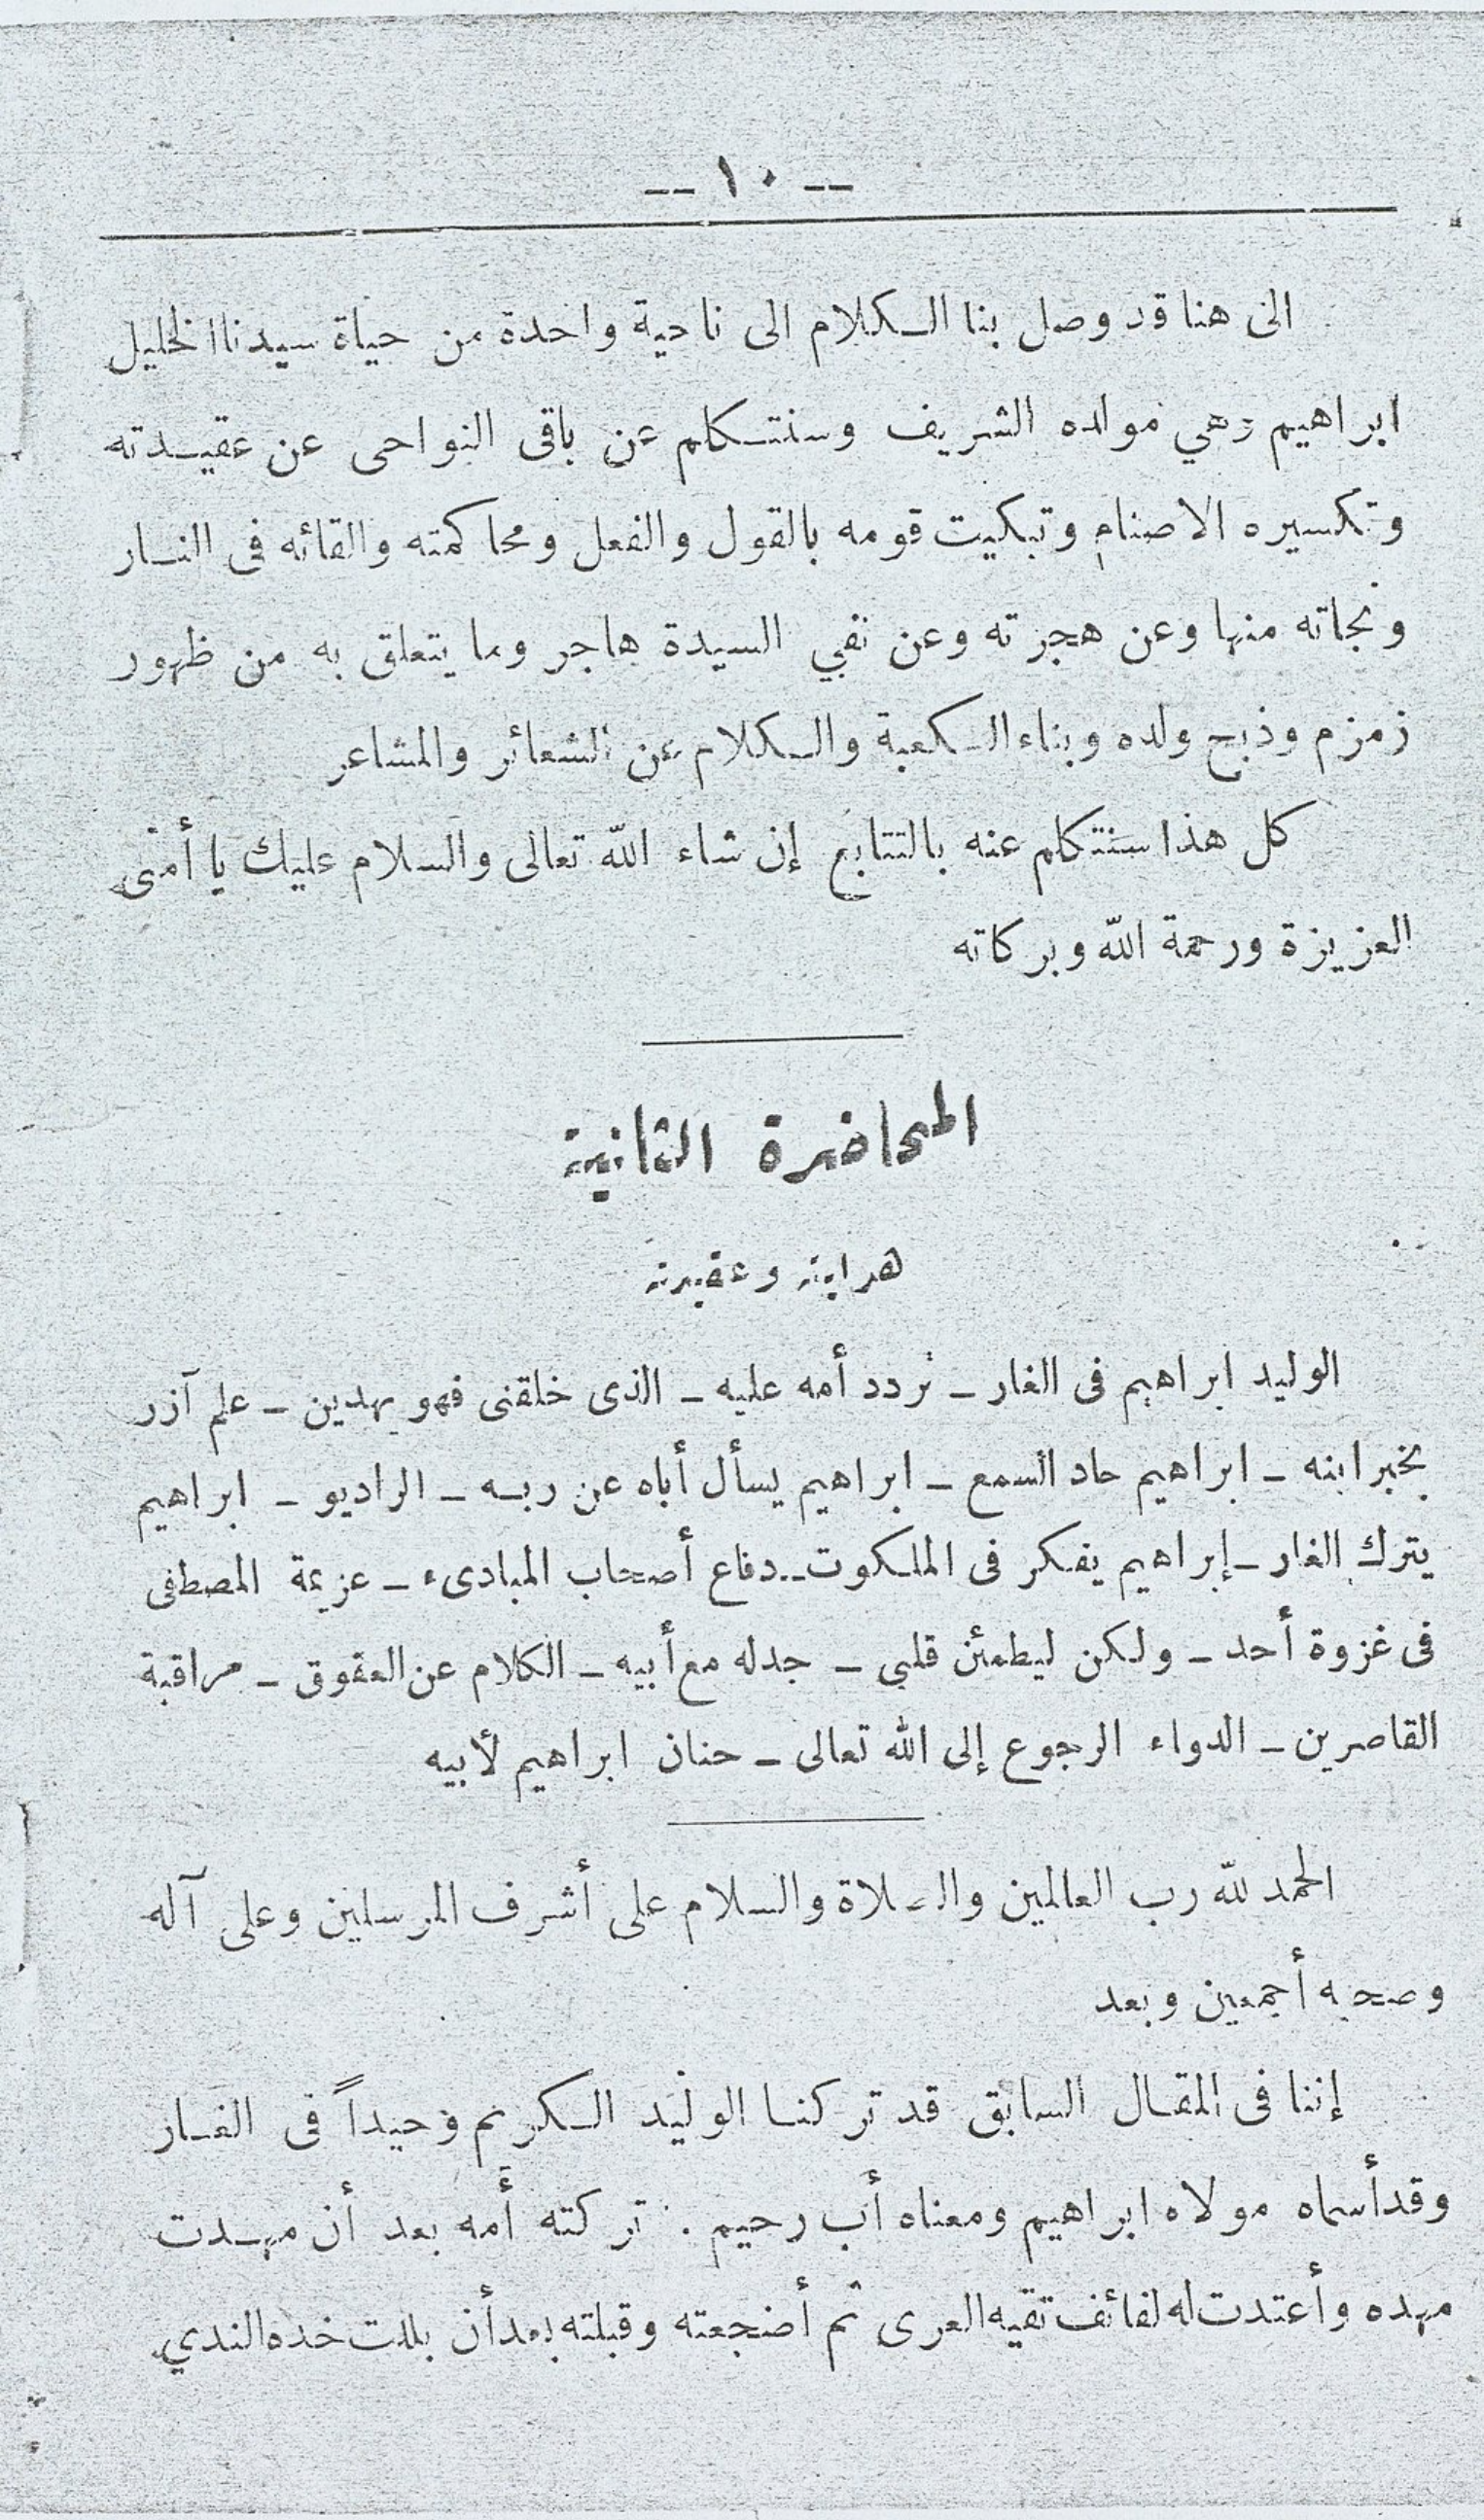 -- ١٠ --
الى هنا قد وصل بنا الكلام الى ناحية واحدة من حياة سيدنا الخليل
ابراهيم وهي مولده الشريف وسنتكلم عن باقى النواحى عن عقيدته
وتكسيره الاصنام وتبكيت قومه بالقول والفعل ومحاكمته والقائه فى النار
ونجاته منها وعن هجرته وعن نفي السيدة هاجر وما يتعلق به من ظهور
زمزم وذبح ولده وبناء الكعبة والكلام عن الشعائر والمشاعر
كل هذا سنتكلم عنه بالتتابع إن شاء الله تعالى والسلام عليك يا أمتى
العزيزة ورحمة الله وبركاته
المحاضرة الثانية
هدايته وعقيدته
الوليد ابراهيم فى الغار – تردد أمه عليه – الذى خلقنى فهو يهدين – علم آزر
بخبر ابنه – ابراهيم حاد السمع – ابراهيم يسأل أباه عن ربه – الراديو – ابراهيم
يترك الغار – إبراهيم يفكر فى الملكوت – دفاع أصحاب المبادىء – عزيمة المصطفى
فى غزوة أحد – ولكن ليطمئن قلبى – جدله مع أبيه – الكلام عن العقوق – مراقبة
القاصرين – الدواء الرجوع إلى الله تعالى – حنان ابراهيم لأبيه
الحمد لله رب العالمين والصلاة والسلام على أشرف المرسلين وعلى آله
وصحبه أجمعين وبعد
إننا فى المقال السابق قد تركنا الوليد الكريم وحيداً فى الغار
وقد أسماه مولاه ابراهيم ومعناه أب رحيم . تركته أمه بعد أن مهدت
مهده وأعتدت له لفائف تقيه العرى ثم أضجعته وقبلته بعد أن بللت خده الندي